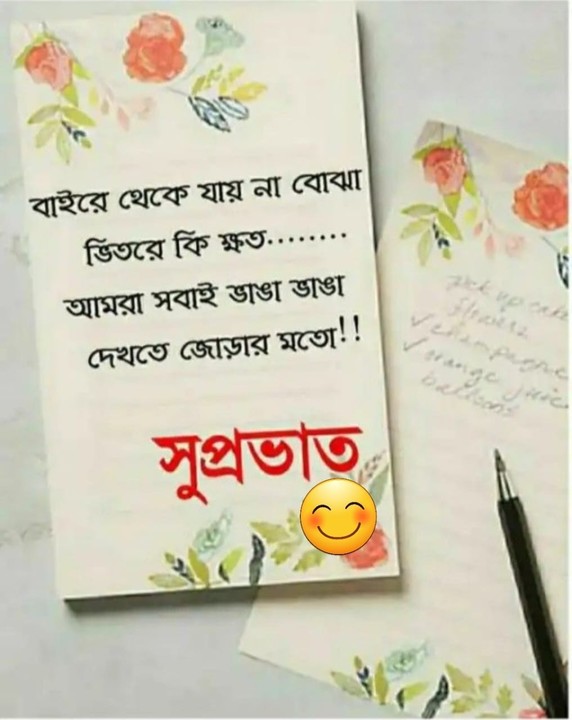 বাইরে থেকে যায় না বোঝা
ভিতরে কি ক্ষত........
আমরা সবাই ভাঙা ভাঙা
দেখতে জোড়ার মতো!!
সুপ্রভাত
pick up cake
flowers
✓ champagne
✓ orange juice
balloons